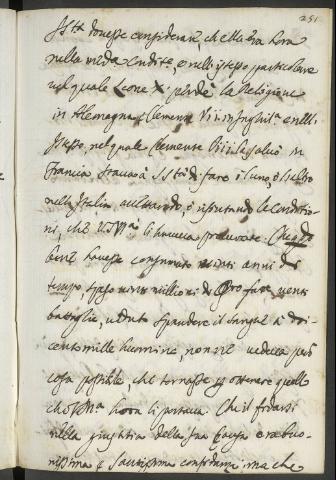 251
S. Stà. dovesse considerare, che ella era hora
nella medª. condite, e nell'istesso particolare
nel quale Leone X perdè la Religione
in Alemagna, Clemente Vii. in Inghilª. e nell'
istesso, nel quale Clemente Viii. la salvò in
Francia. Stava à S. Stà. di fare l'uno, ò l'altro
nell'Italia, accettando, ò rifiutando le conditio-
ni, che li haveva procurate.
bene havesse consumato venti anni di
tempo, speso venti millioni di oro, fatte venti
battaglie, veduto spandere il sangue a
cento mille huomini, non si vedeva però
cosa possibile, che tornasse p ottenere quello
che S. Mà. hora li portava. Che il fidarsi
nella giustitia della sua Causa era buo-
nissima e santissima confidenza, ma che